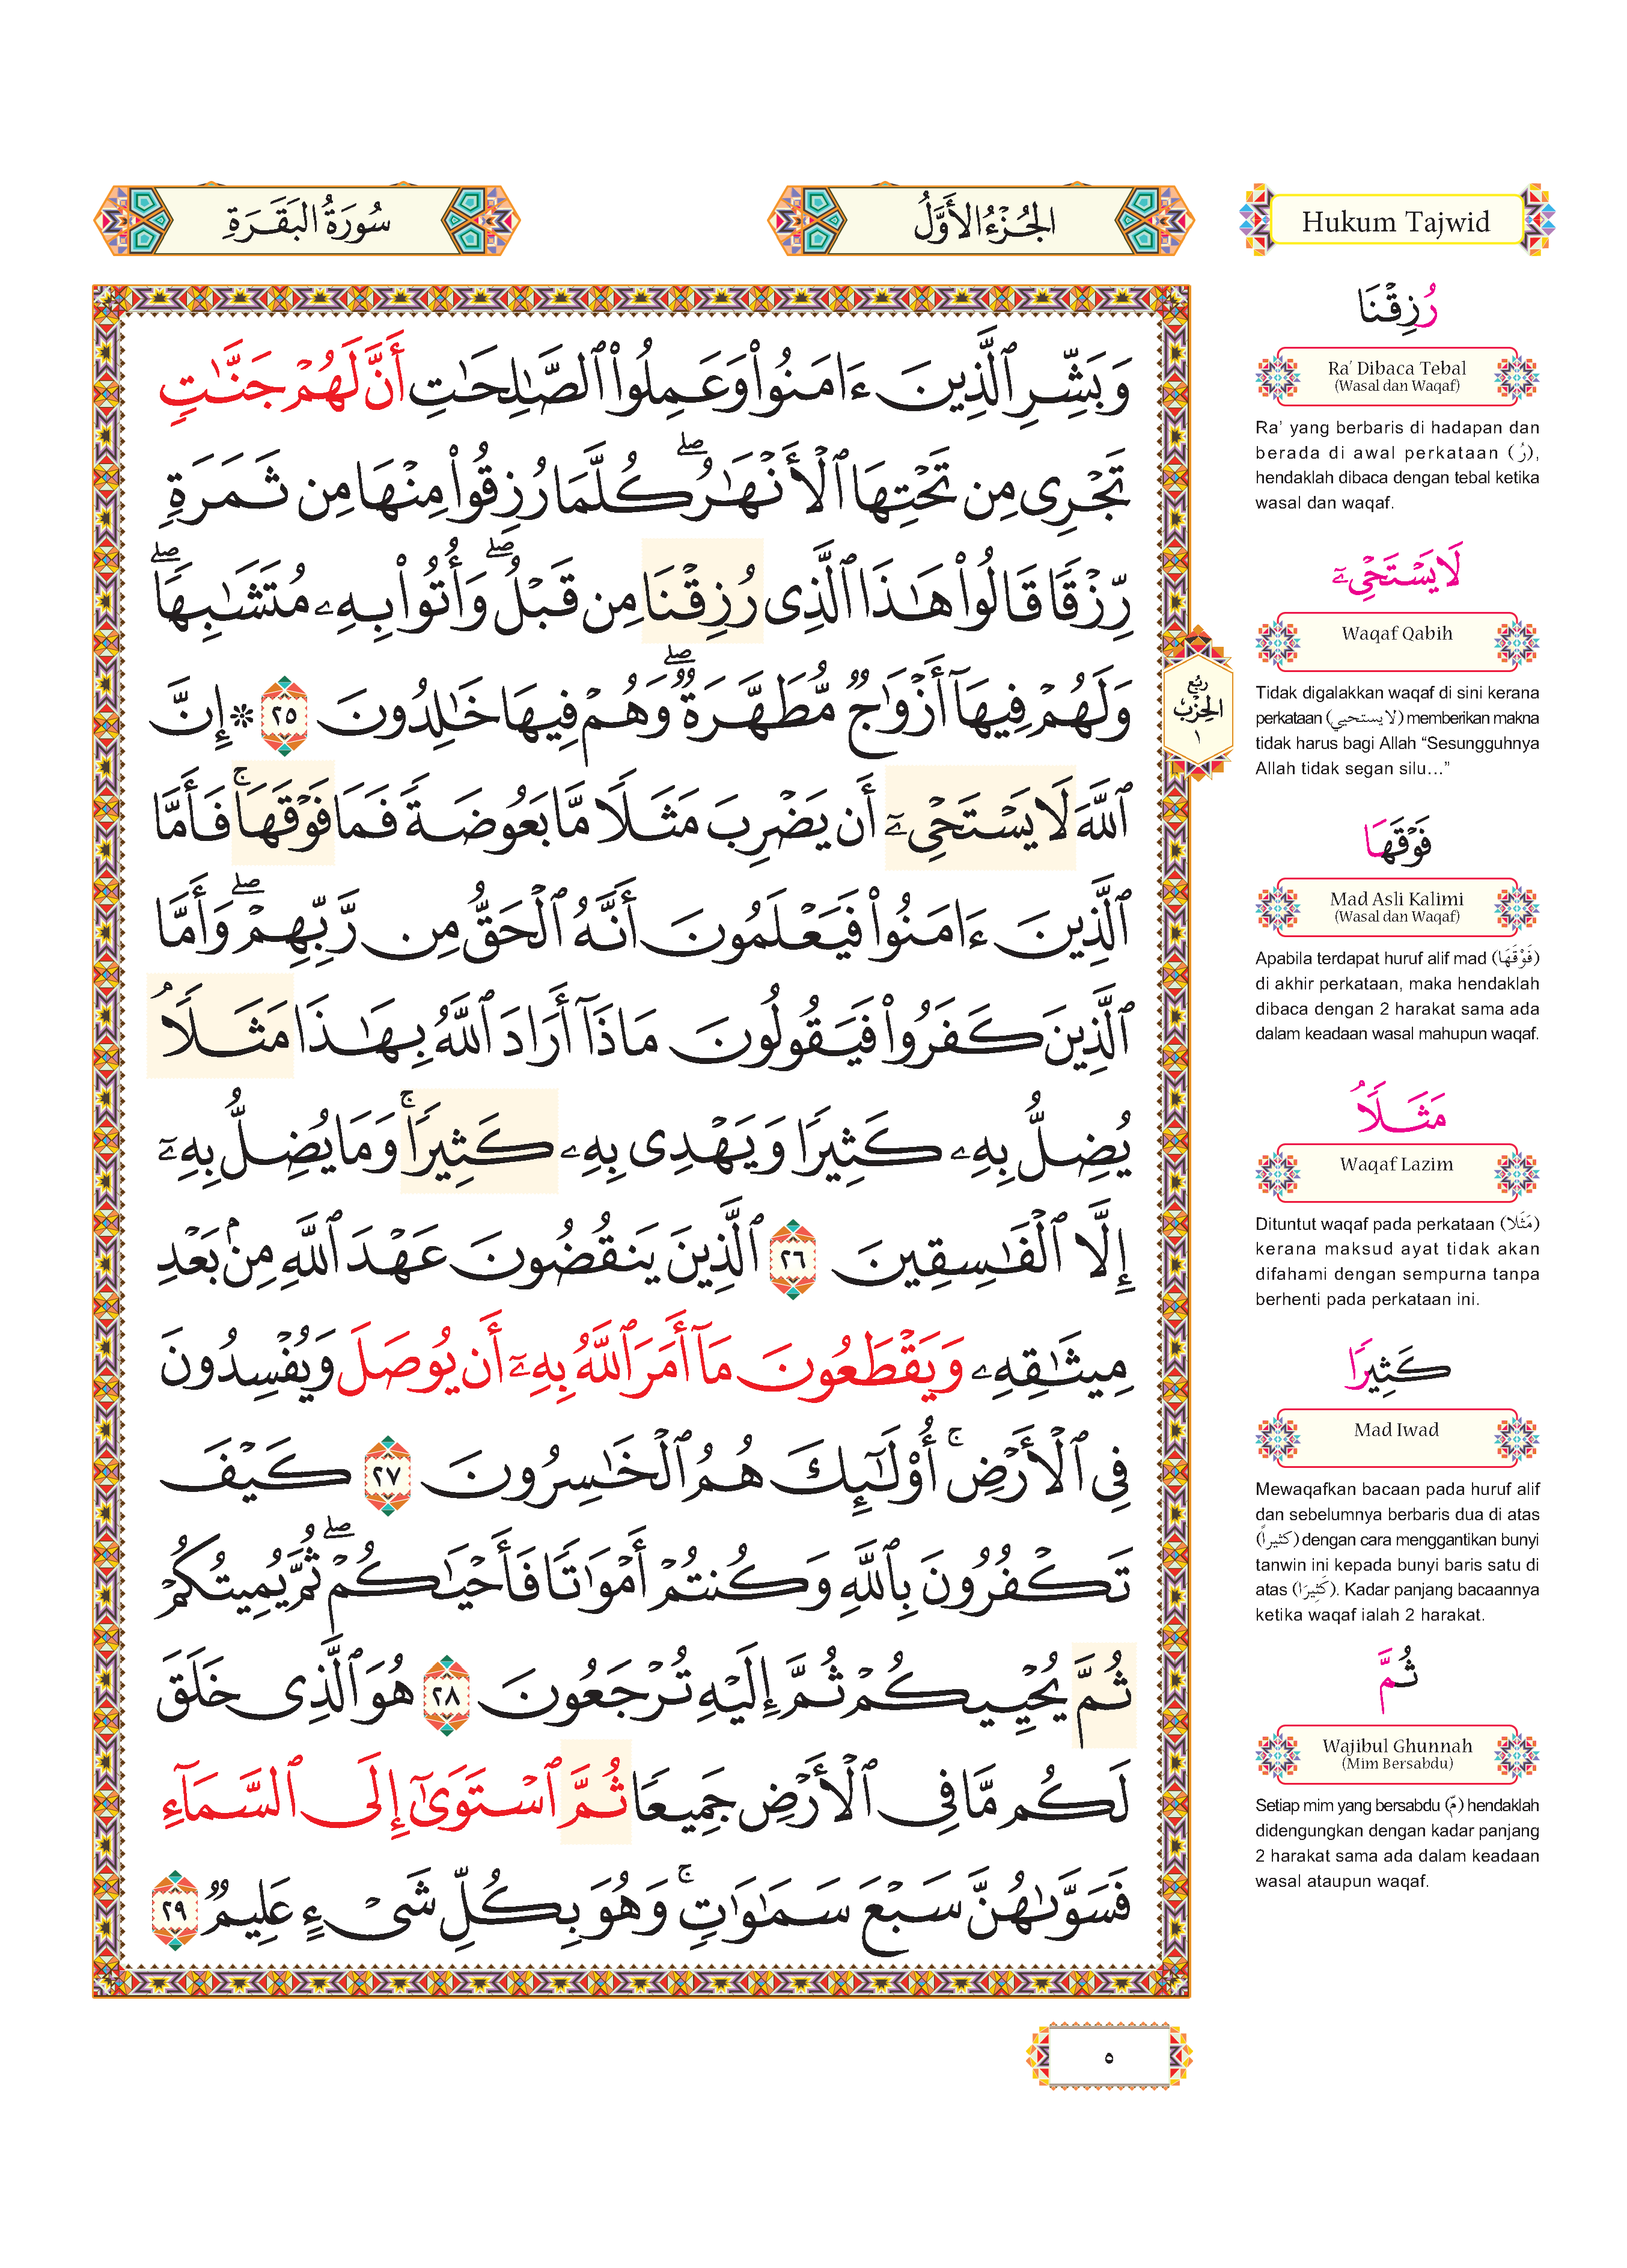 سُورَةُ البَقَرَةِ
الجُزْءُ الأَوَّلُ
وَبَشِّرِ ٱلَّذِينَ ءَامَنُواْ وَعَمِلُواْ ٱلصَّٰلِحَٰتِ أَنَّ لَهُمْ جَنَّٰتٍ
تَجْرِى مِن تَحْتِهَا ٱلْأَنْهَٰرُۖ كُلَّمَا رُزِقُواْ مِنْهَا مِن ثَمَرَةٍ
رِّزْقًا قَالُواْ هَٰذَا ٱلَّذِى رُزِقْنَا مِن قَبْلُۖ وَأُتُواْ بِهِۦ مُتَشَٰبِهًاۖ
وَلَهُمْ فِيهَآ أَزْوَٰجٌ مُّطَهَّرَةٌۖ وَهُمْ فِيهَا خَٰلِدُونَ ٢٥ ۞ إِنَّ
ٱللَّهَ لَا يَسْتَحْىِۦٓ أَن يَضْرِبَ مَثَلًا مَّا بَعُوضَةً فَمَا فَوْقَهَاۚ فَأَمَّا
ٱلَّذِينَ ءَامَنُواْ فَيَعْلَمُونَ أَنَّهُ ٱلْحَقُّ مِن رَّبِّهِمْۖ وَأَمَّا
ٱلَّذِينَ كَفَرُواْ فَيَقُولُونَ مَاذَآ أَرَادَ ٱللَّهُ بِهَٰذَا مَثَلًاۘ
يُضِلُّ بِهِۦ كَثِيرًا وَيَهْدِى بِهِۦ كَثِيرًاۚ وَمَا يُضِلُّ بِهِۦٓ
إِلَّا ٱلْفَٰسِقِينَ ٢٦ ٱلَّذِينَ يَنقُضُونَ عَهْدَ ٱللَّهِ مِنۢ بَعْدِ
مِيثَٰقِهِۦ وَيَقْطَعُونَ مَآ أَمَرَ ٱللَّهُ بِهِۦٓ أَن يُوصَلَ وَيُفْسِدُونَ
فِى ٱلْأَرْضِۚ أُوْلَٰٓئِكَ هُمُ ٱلْخَٰسِرُونَ ٢٧ كَيْفَ
تَكْفُرُونَ بِٱللَّهِ وَكُنتُمْ أَمْوَٰتًا فَأَحْيَٰكُمْۖ ثُمَّ يُمِيتُكُمْ
ثُمَّ يُحْيِيكُمْ ثُمَّ إِلَيْهِ تُرْجَعُونَ ٢٨ هُوَ ٱلَّذِى خَلَقَ
لَكُم مَّا فِى ٱلْأَرْضِ جَمِيعًا ثُمَّ ٱسْتَوَىٰٓ إِلَى ٱلسَّمَآءِ
فَسَوَّىٰهُنَّ سَبْعَ سَمَٰوَٰتٍۚ وَهُوَ بِكُلِّ شَىْءٍ عَلِيمٌ ٢٩
ربع
الحزب
١
٥
Hukum Tajwid
رُزِقْنَا
Ra' Dibaca Tebal
(Wasal dan Waqaf)
Ra' yang berbaris di hadapan dan
berada di awal perkataan (رُ),
hendaklah dibaca dengan tebal ketika
wasal dan waqaf.
لَا يَسْتَحْىِۦٓ
Waqaf Qabih
Tidak digalakkan waqaf di sini kerana
perkataan (لا يستحيي) memberikan makna
tidak harus bagi Allah “Sesungguhnya
Allah tidak segan silu...”
فَوْقَهَا
Mad Asli Kalimi
(Wasal dan Waqaf)
Apabila terdapat huruf alif mad (فَوْقَهَا)
di akhir perkataan, maka hendaklah
dibaca dengan 2 harakat sama ada
dalam keadaan wasal mahupun waqaf.
مَثَلًاۘ
Waqaf Lazim
Dituntut waqaf pada perkataan (مَثَلًا)
kerana maksud ayat tidak akan
difahami dengan sempurna tanpa
berhenti pada perkataan ini.
كَثِيرًا
Mad Iwad
Mewaqafkan bacaan pada huruf alif
dan sebelumnya berbaris dua di atas
(كثيراً) dengan cara menggantikan bunyi
tanwin ini kepada bunyi baris satu di
atas (كَثِيرَا). Kadar panjang bacaannya
ketika waqaf ialah 2 harakat.
ثُمَّ
Wajibul Ghunnah
(Mim Bersabdu)
Setiap mim yang bersabdu (مّ) hendaklah
didengungkan dengan kadar panjang
2 harakat sama ada dalam keadaan
wasal ataupun waqaf.